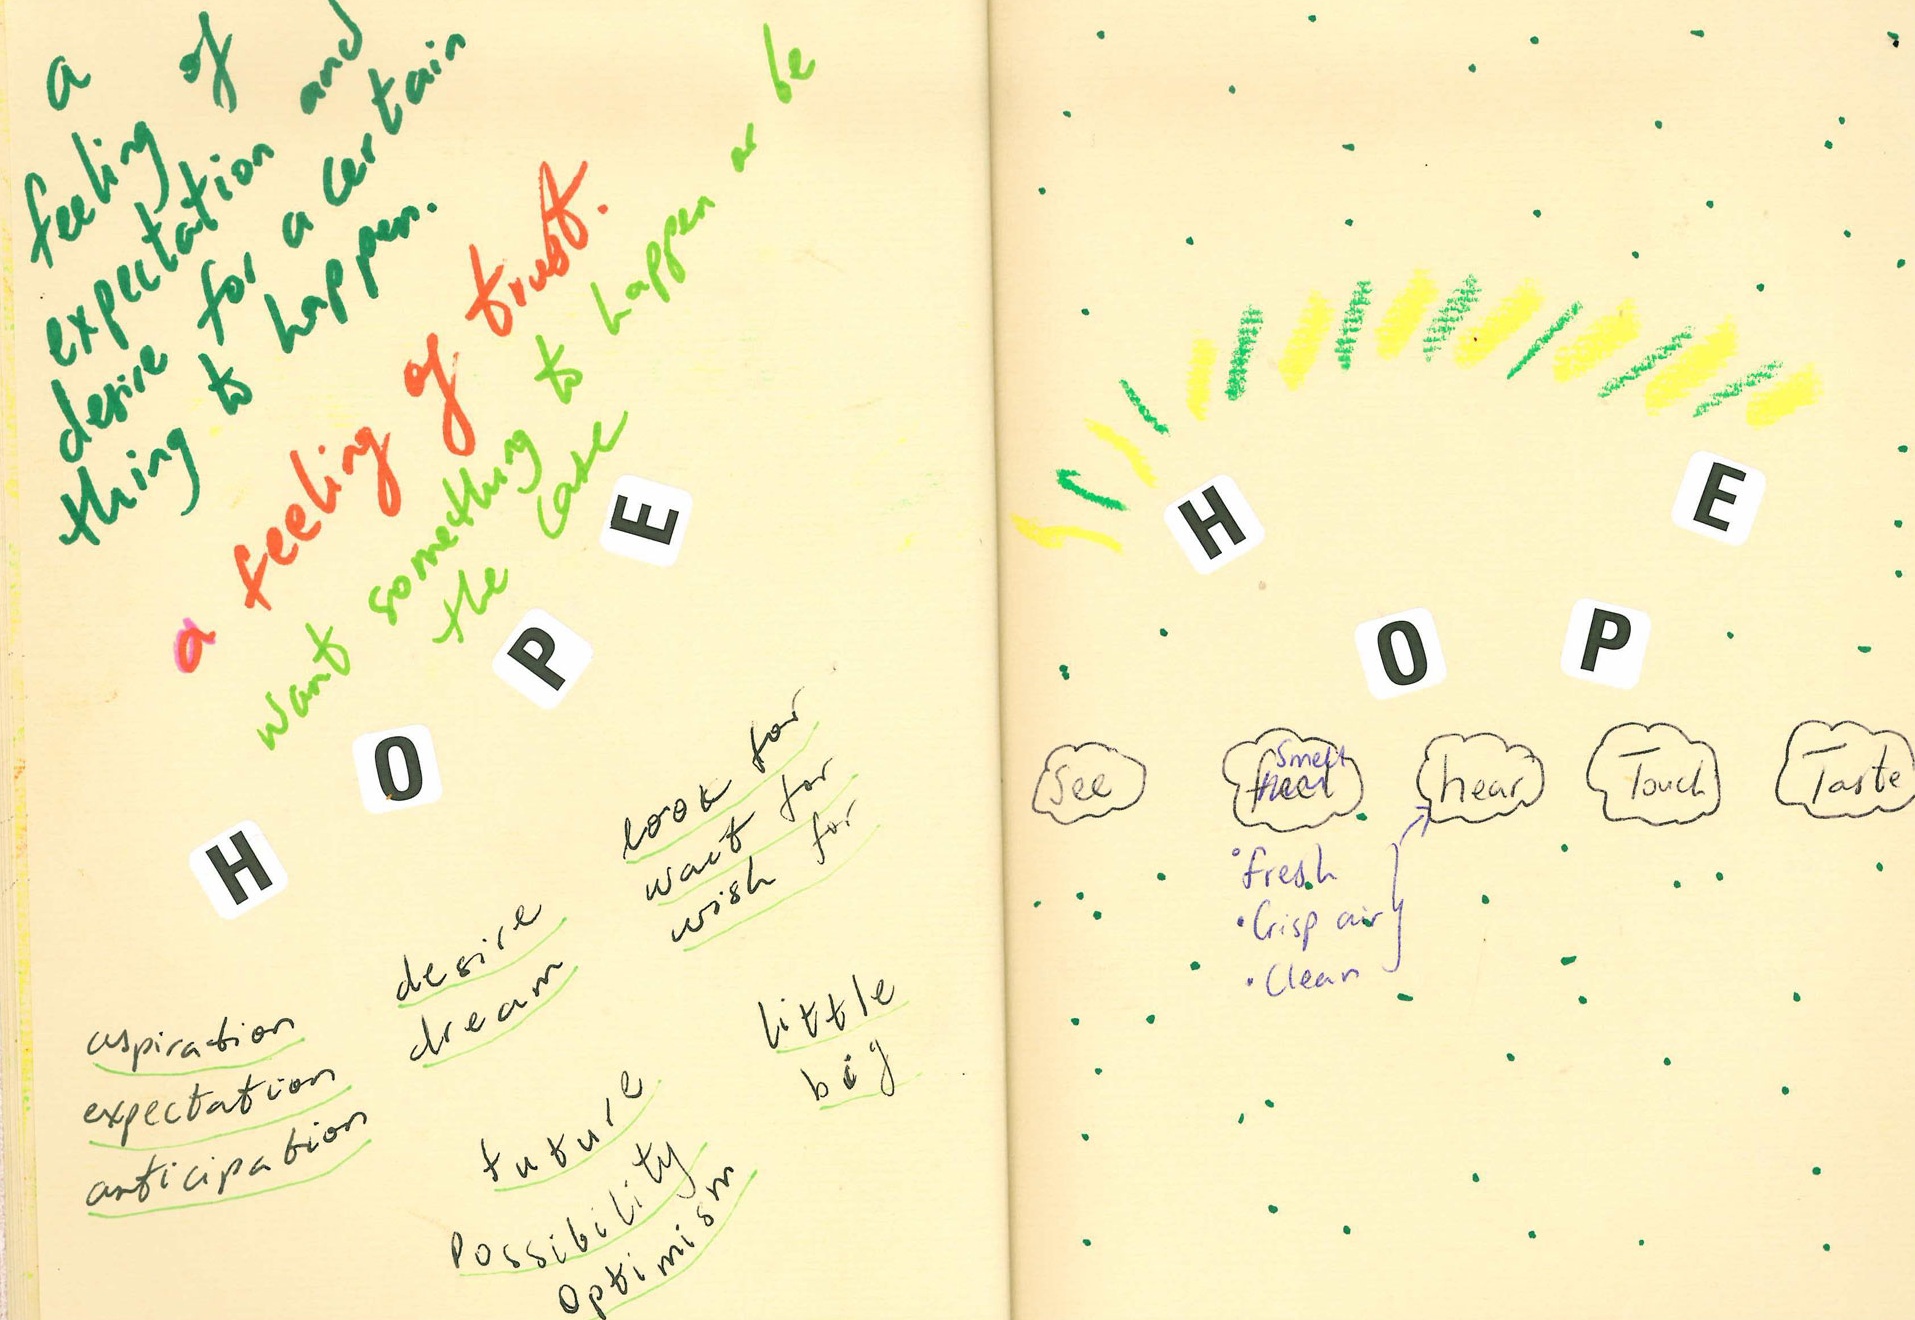 a
feeling of
expectation and
desire for a certain
thing to happen.
a feeling of trust.
want something to happen or be
the case
H O P E
look for
wait for
wish for
desire
dream
aspiration
expectation
anticipation
little
big
future
Possibility
Optimism
H O P E
See
Smell
hear
Touch
Taste
• fresh
• Crisp air
• Clean